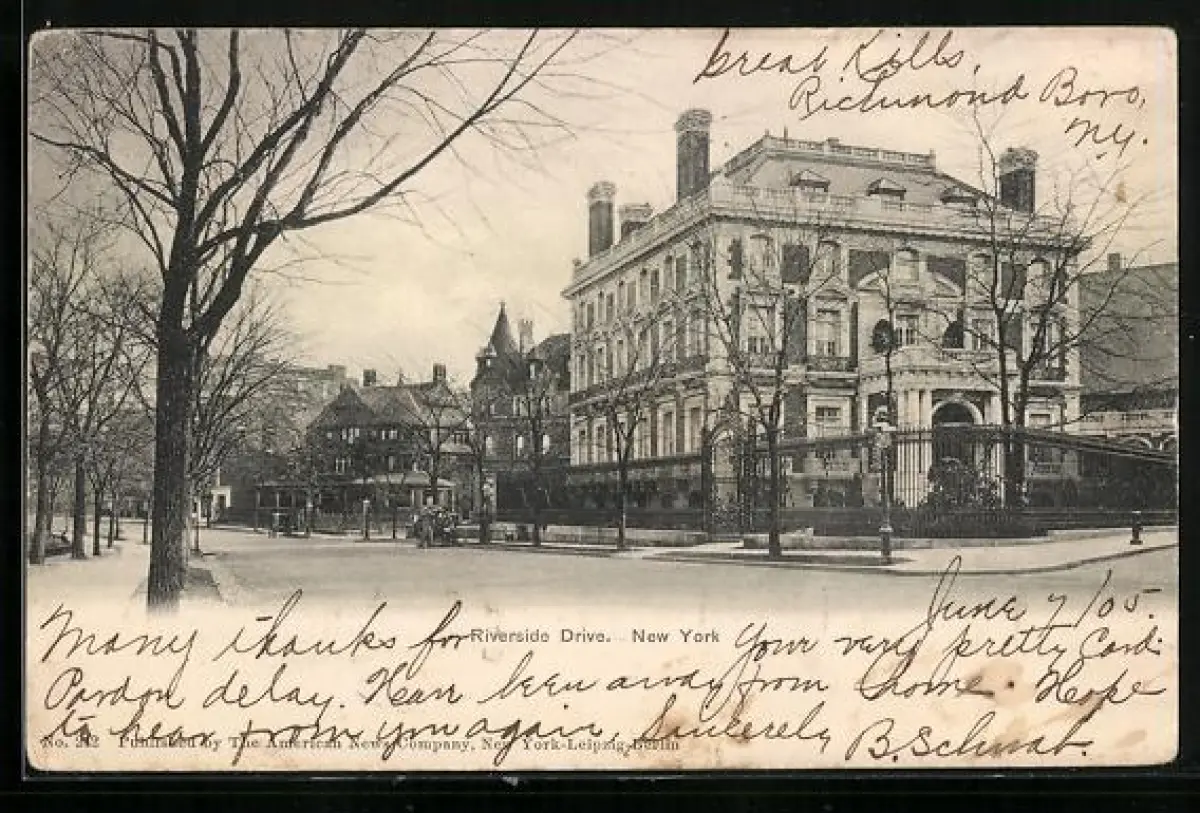 Great Kills,
Richmond Boro,
N.Y.
June 7/05.
Many thanks for Riverside Drive. New York Your very pretty Card.
Pardon delay. Have been away from home. Hope
to hear from you again, Sincerely B. Schwab.
No. 212 Published by The American News Company, New York-Leipzig-Berlin